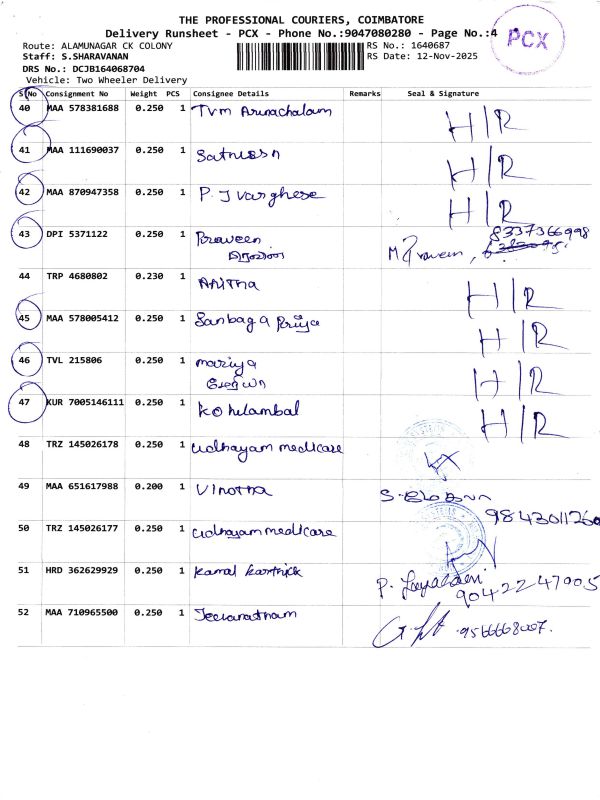 THE PROFESSIONAL COURIERS, COIMBATORE
Delivery Runsheet - PCX - Phone No.:9047080280 - Page No.:4
PCX
Route: ALAMUNAGAR CK COLONY
RS No.: 1640687
Staff: S.SHARAVANAN
RS Date: 12-Nov-2025
DRS No.: DCJB164068704
Vehicle: Two Wheeler Delivery
S No Consignment No Weight PCS Consignee Details Remarks Seal & Signature
40 MAA 578381688 0.250 1 Tvm Arunachalam H/R
41 MAA 111690037 0.250 1 H/R
42 MAA 870947358 0.250 1 P. J Varghese H/R
43 DPI 5371122 0.250 1 Praveen M Praveen, 8337366998
44 TRP 4680802 0.230 1 Anitha H/R
45 MAA 578005412 0.250 1 Sanbaga Priya H/R
46 TVL 215806 0.250 1 mariya H/R
47 KUR 7005146111 0.250 1 Kohilambal H/R
48 TRZ 145026178 0.250 1 Udhayam medicare
49 MAA 651617988 0.200 1 Vinotha
9843011260
50 TRZ 145026177 0.250 1 Udhayam medicare
51 HRD 362629929 0.250 1 Kamal Karthick
9042247005
52 MAA 710965500 0.250 1 Jeevaratham 9566668007.